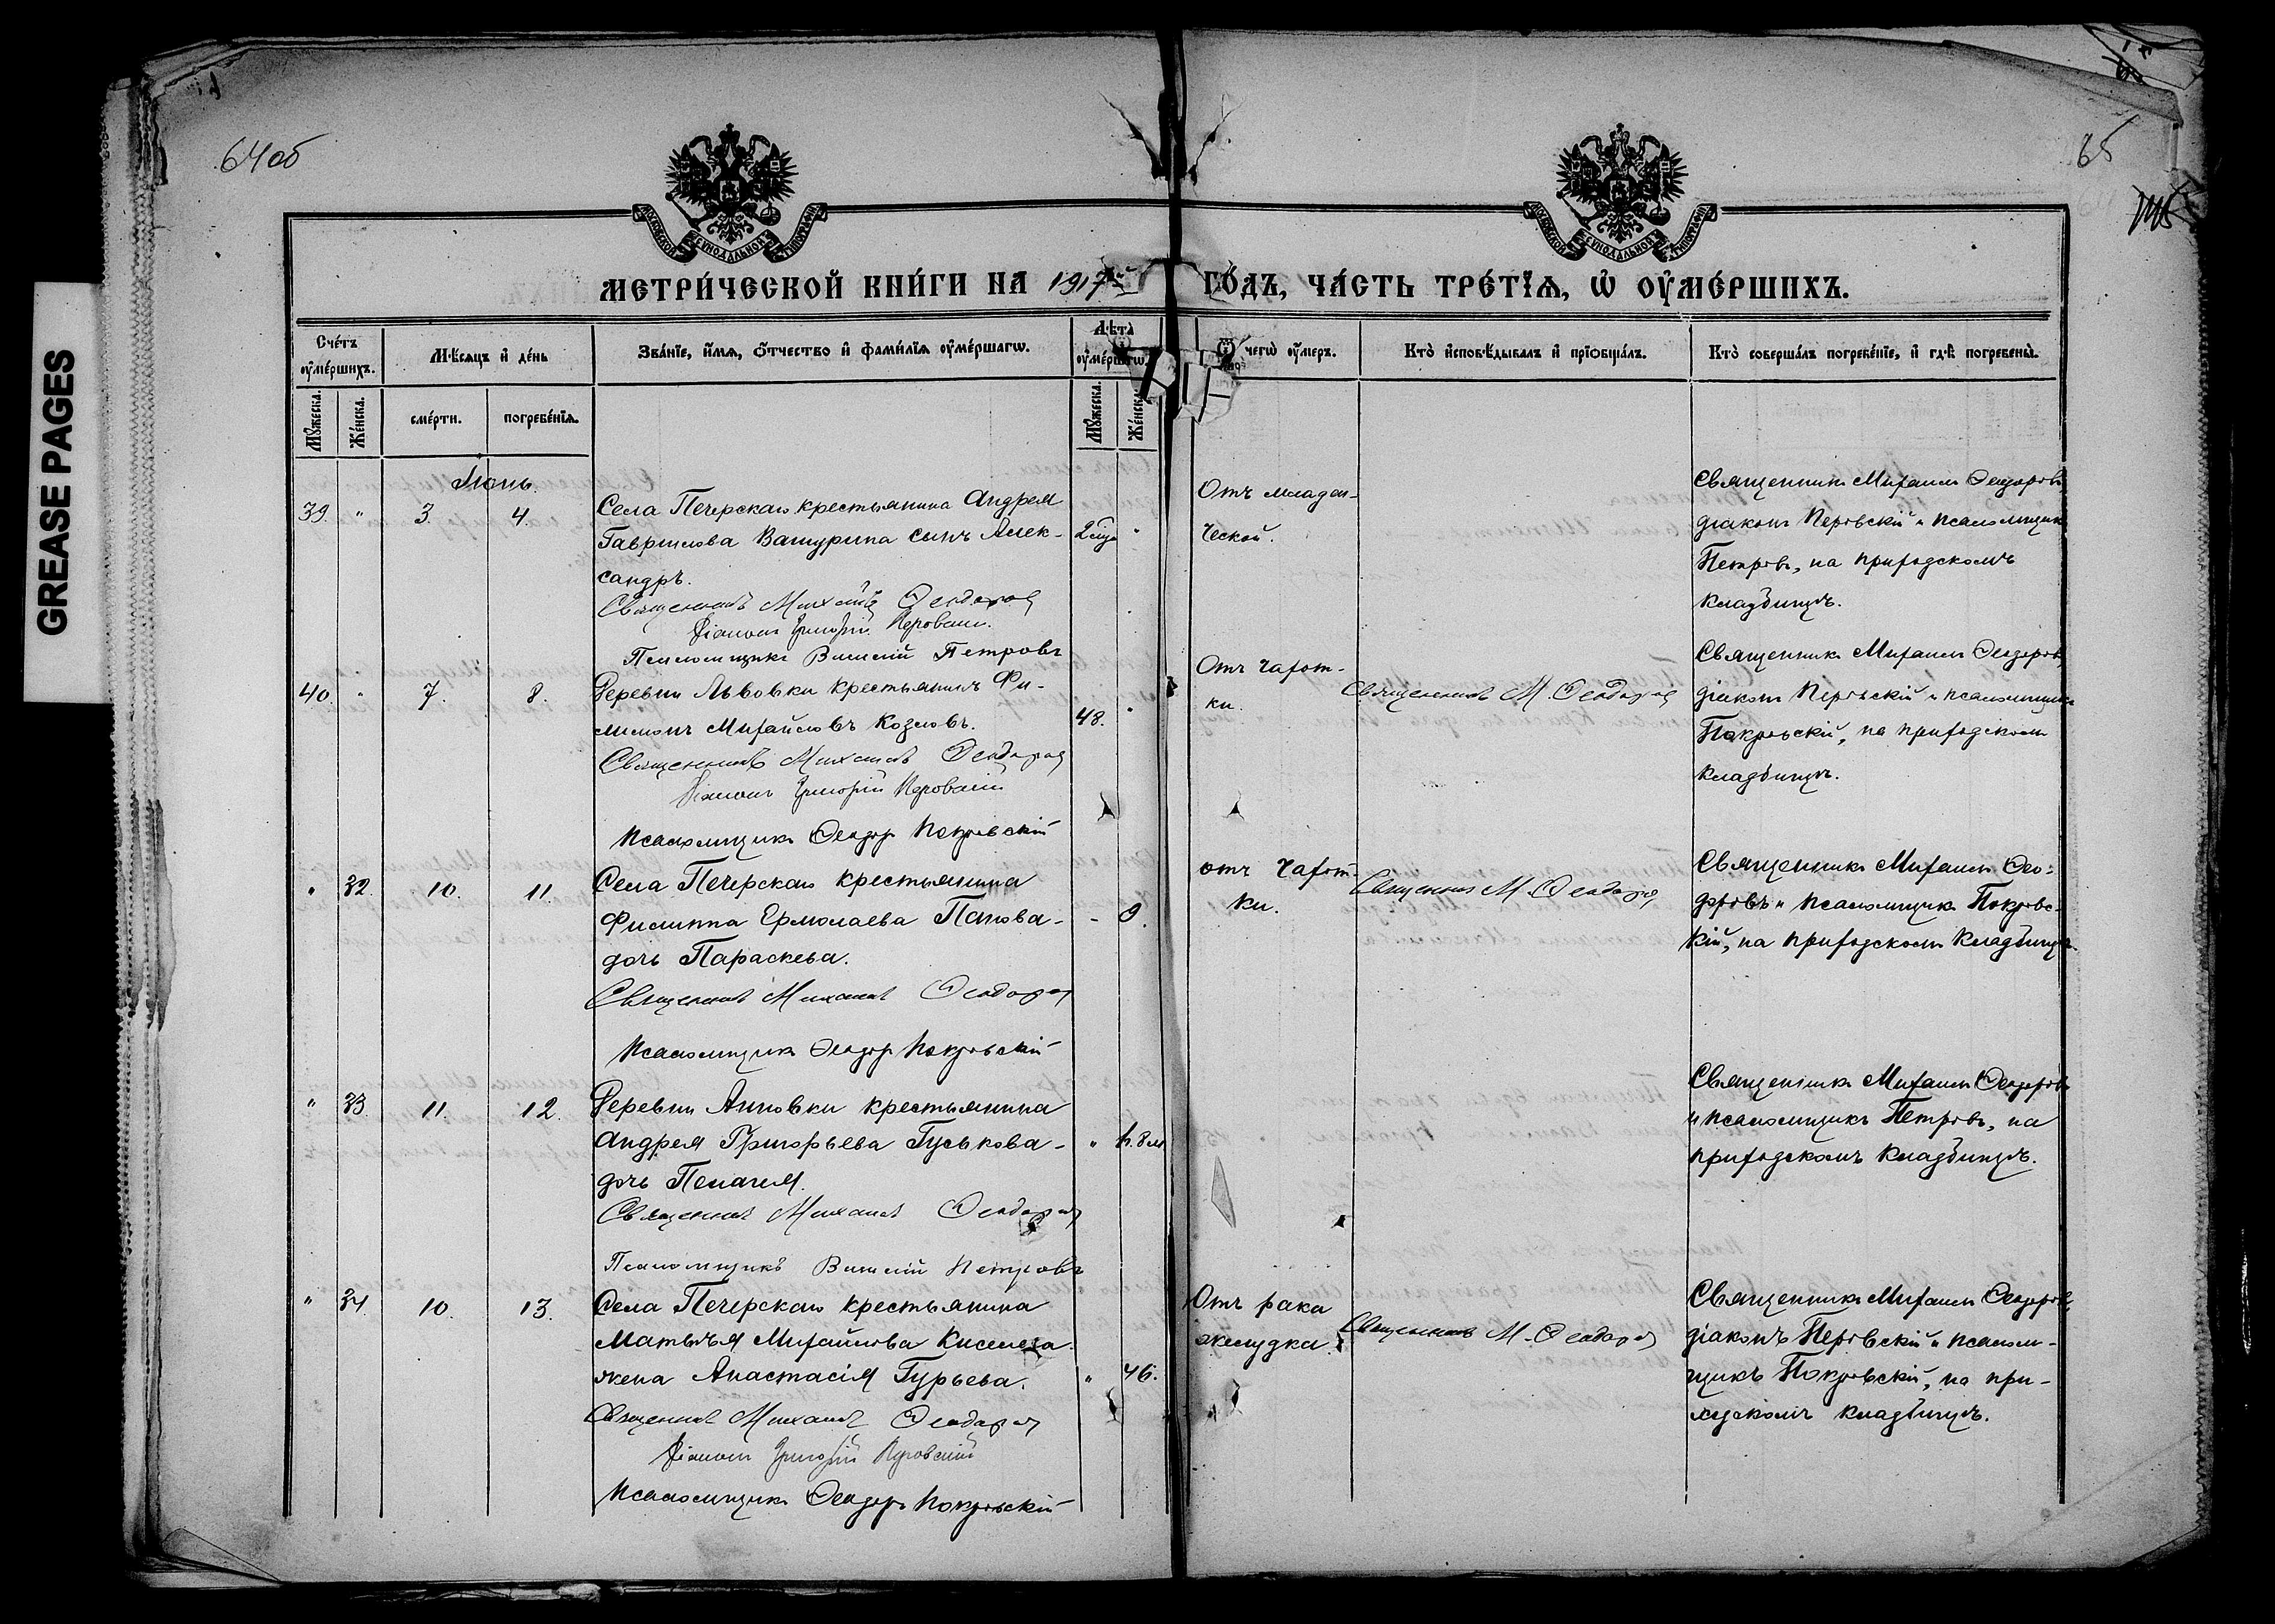 GREASE PAGES
64об
65
МОСКОВСКОЙ СѴНОДАЛЬНОЙ ТИПОГРАФІИ
МОСКОВСКОЙ СѴНОДАЛЬНОЙ ТИПОГРАФІИ
МЕТРИ́ЧЕСКОЙ КНИ́ГИ НА 1917й ГО́ДЪ, ЧА́СТЬ ТРЕ́ТЇѦ, Ѡ ОУ҆МЕ́РШИХЪ.
Сче́тъ оу҆ме́ршихъ.
Мѣ́сяцъ и҆ де́нь
Зва́нїе, и҆́мѧ, ѻ҆́тчество и҆ фами́лїѧ оу҆ме́ршагѡ.
Лѣ́та оу҆ме́ршагѡ.
Ѿ чегѡ̀ оу҆́меръ.
Кто̀ и҆сповѣ́дывалъ и҆ прїѡбща́лъ.
Кто̀ соверша́лъ погребе́нїе, и҆ гдѣ̀ погребены̀.
Мꙋ́жеска.
Же́нска.
сме́рти.
погребе́нїѧ.
Мꙋ́жеска.
Же́нска.
Іюнь.
39. " 3. 4.
Села Печерскаго крестьянина Андрея
Гаврилова Вашурина сынъ Алек-
сандръ.
Священникъ Михаилъ Ѳеодоров
Діакон Григорій Перовский
Псаломщикъ Василій Петровъ
Отъ младен-
ческой.
Священникъ Михаилъ Ѳеодоровъ,
діаконъ Перовскій и псаломщикъ
Петровъ, на приходскомъ
кладбищѣ.
40. " 7. 8.
Деревни Львовки крестьянинъ Фи-
лимонъ Михайловъ Козловъ.
48. "
Священникъ Михаилъ Ѳеодоров
Діакон Григорій Перовскій
Псаломщикъ Ѳеодоръ Покровскій
Отъ чахот-
ки.
Священникъ М. Ѳеодоров
Священникъ Михаилъ Ѳеодоровъ,
діаконъ Перовскій и псаломщикъ
Покровскій, на приходскомъ
кладбищѣ.
" 32. 10. 11.
Села Печерскаго крестьянина
Филиппа Ермолаева Панова -
дочь Параскева.
- 9.
Священникъ Михаилъ Ѳеодоров
Псаломщикъ Ѳеодоръ Покровскій
отъ чахот-
ки.
Священник М. Ѳеодоров
Священникъ Михаилъ Ѳео-
доровъ и псаломщикъ Покровс-
кій, на приходскомъ кладбищѣ
" 33. 11. 12.
Деревни Анновки крестьянина
Андрея Григорьева Гуськова -
дочь Пелагея.
Священникъ Михаилъ Ѳеодоров
Псаломщикъ Василій Петровъ
Священникъ Михаилъ Ѳеодоровъ
и псаломщикъ Петровъ, на
приходскомъ кладбищѣ.
" 34. 10. 13.
Села Печерскаго крестьянина
Матвѣя Михайлова Киселева
жена Анастасія Гурьева.
" 46.
Священникъ Михаилъ Ѳеодоров
Діакон Григорій Перовскій
Псаломщикъ Ѳеодоръ Покровскій
Отъ рака
желудка.
Священникъ М. Ѳеодоров
Священникъ Михаилъ Ѳеодоровъ,
діаконъ Перовскій и псалом-
щикъ Покровскій, на при-
ходскомъ кладбищѣ.